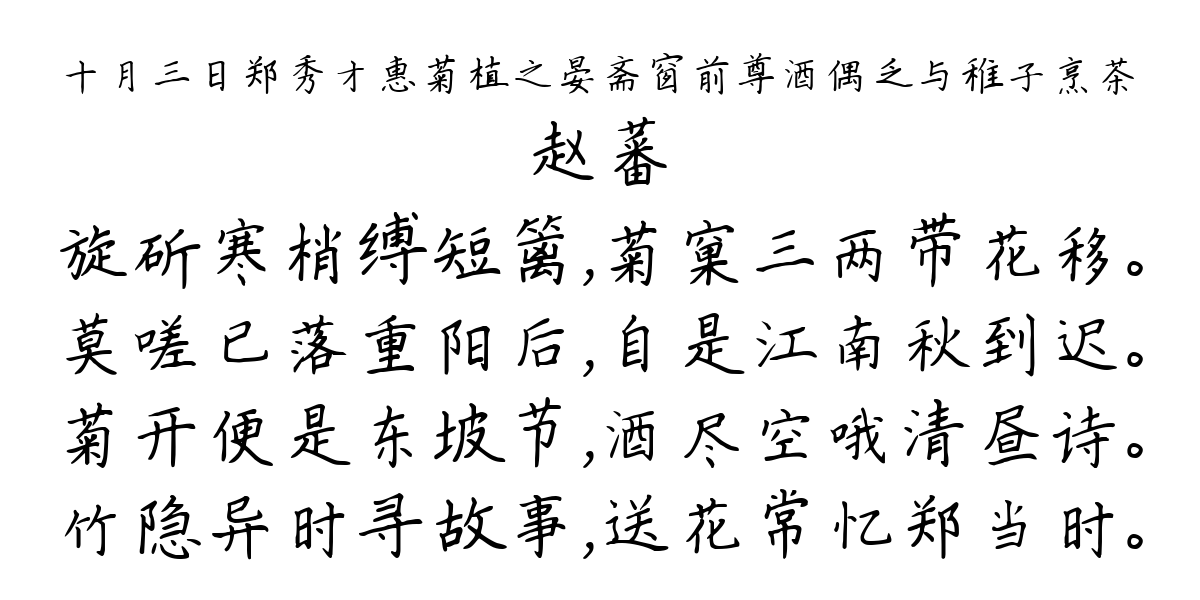 十月三日郑秀才惠菊植之晏斋窗前尊酒偶乏与稚子烹茶
赵蕃
旋斫寒梢缚短篱,菊窠三两带花移。
莫嗟已落重阳后,自是江南秋到迟。
菊开便是东坡节,酒尽空哦清昼诗。
竹隐异时寻故事,送花常忆郑当时。